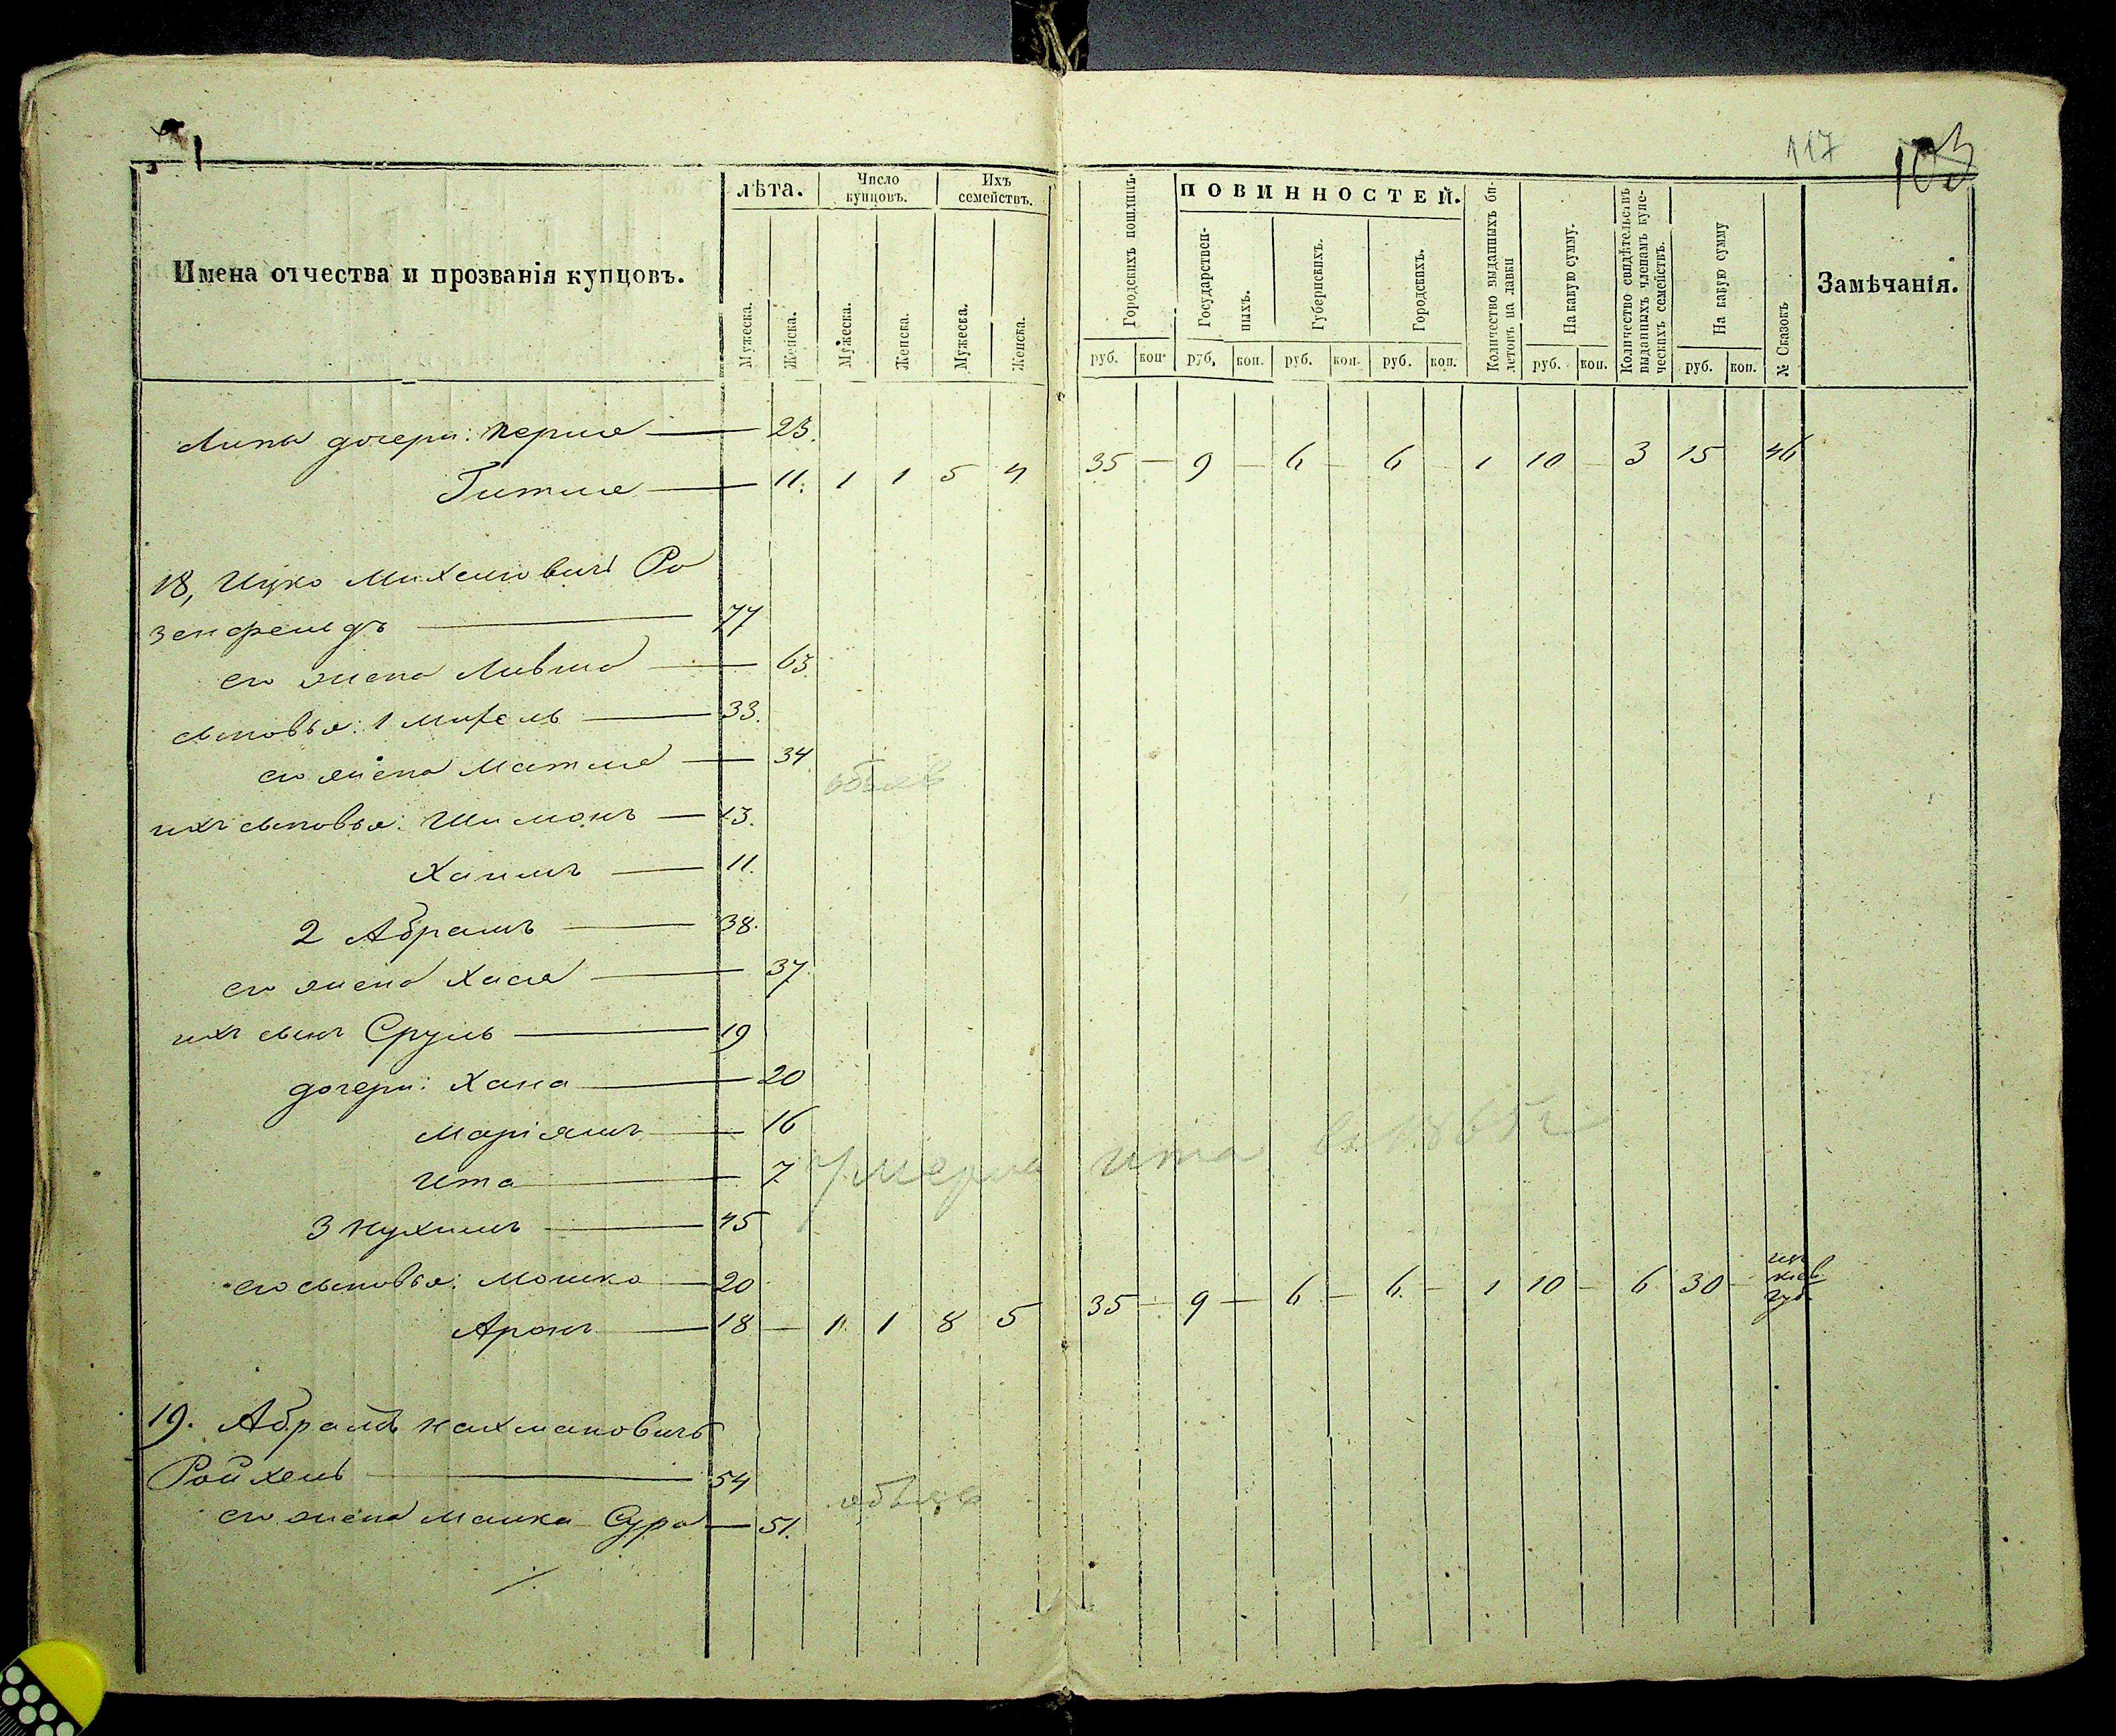 117 103
Имена отчества и прозванія купцовъ.
лѣта.
Мужеска.
Женска.
Число купцовъ.
Мужеска.
Женска.
Ихъ семействъ.
Мужеска.
Женска.
Городскихъ пошлинъ.
руб. коп.
ПОВИННОСТЕЙ.
Государственныхъ.
руб. коп.
Губернскихъ.
руб. коп.
Городскихъ.
руб. коп.
Количество выданныхъ билетовъ на лавки
На какую сумму.
руб. коп.
Количество свидѣтельствъ выданныхъ членамъ купеческихъ семействъ.
На какую сумму
руб. коп.
№ Сказокъ
Замѣчанія.
дочери: Перля — 23.
Гитля — 11. 1 1 5 4 35 — 9 — 6 — 6 — 1 10 — 3 15 46
18, Ицко Михелиовичъ Ро
зенфельдъ — 77
его жена Ливша — 63.
сыновья: 1 Михель — 33.
его жена Матля — 34
ихъ сыновья: Шимонъ — 13.
Хаимъ — 11.
2 Абрамъ — 38.
его жена Хася — 37.
ихъ сынъ Сруль — 19
дочери: Хана — 20
Маріямъ — 16
Ита — 7 умерла Ита въ 1865 г.
3 Нухимъ — 45
его сыновья: Мошко — 20
Аронъ — 18 — 1 1 8 5 35 — 9 — 6 — 6. — 1 10 — 6 30 —
кіев.
губ
19. Абрамъ Нахмановичъ
Ройхель — 54
его жена Малка Сура — 51.